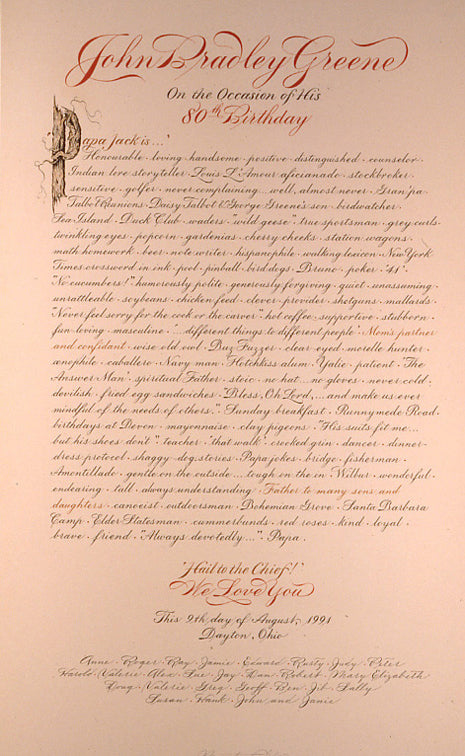 John Bradley Greene
On the Occasion of His
80th Birthday
Papa Jack is...
Honourable · loving · handsome · positive · distinguished · counselor ·
Indian lore storyteller · Louis L'Amour aficianado · stockbroker ·
sensitive · golfer · never complaining... well, almost never · Gran'pa ·
Talbot Reunions · Daisy Talbot & George Greene's son · birdwatcher ·
Sea Island · Duck Club · waders · "wild geese" · true sportsman · grey curls ·
twinkling eyes · popcorn · gardenias · cherry cheeks · station wagons ·
math homework · beer · note writer · hispanophile · walking lexicon · New York
Times crossword in ink · pool · pinball · bird dogs · Bruno · poker · '41' ·
"No cucumbers!" · humorously polite · generously forgiving · quiet · unassuming ·
unrattleable · soybeans · chicken feed · clever · provider · shotguns · mallards ·
"Never feel sorry for the cook or the carver" · hot coffee · supportive · stubborn ·
fun-loving · masculine · "...different things to different people" · Mom's partner
and confidant · wise old owl · Duz Fuzzer · clear eyed · morelle hunter ·
œnophile · caballero · Navy man · Hotchkiss alum · Yalie · patient · "The
Answer Man" · spiritual Father · stoic · no hat... no gloves · never cold ·
devilish · fried egg sandwiches · "Bless, Oh Lord,... and make us ever
mindful of the needs of others." · Sunday breakfast · Runnymede Road ·
birthdays at Devon · mayonnaise · clay pigeons · "His suits fit me...
but his shoes don't" · teacher · 'that walk' · crooked grin · dancer · dinner-
dress protocol · shaggy dog stories · Papa jokes · bridge · fisherman ·
Amontillado · gentle on the outside... tough on the in · Wilbur · wonderful ·
endearing · tall · always understanding · Father to many sons and
daughters · canoeist · outdoorsman · Bohemian Grove · Santa Barbara
Camp · Elder Statesman · cummerbunds · red roses · kind · loyal ·
brave · friend · "Always devotedly..." · Papa ·
'Hail to the Chief!'
We Love You
This 9th day of August, 1991
Dayton, Ohio
Anne · Roger · Ray · Jamie · Edward · Rusty · Judy · Peter
Harold · Valerie · Alex · Sue · Jay · Dan · Robert · Mary Elizabeth
Doug · Valerie · Greg · Geoff · Ben · Jit · Sally
Susan · Hank · John and Janie